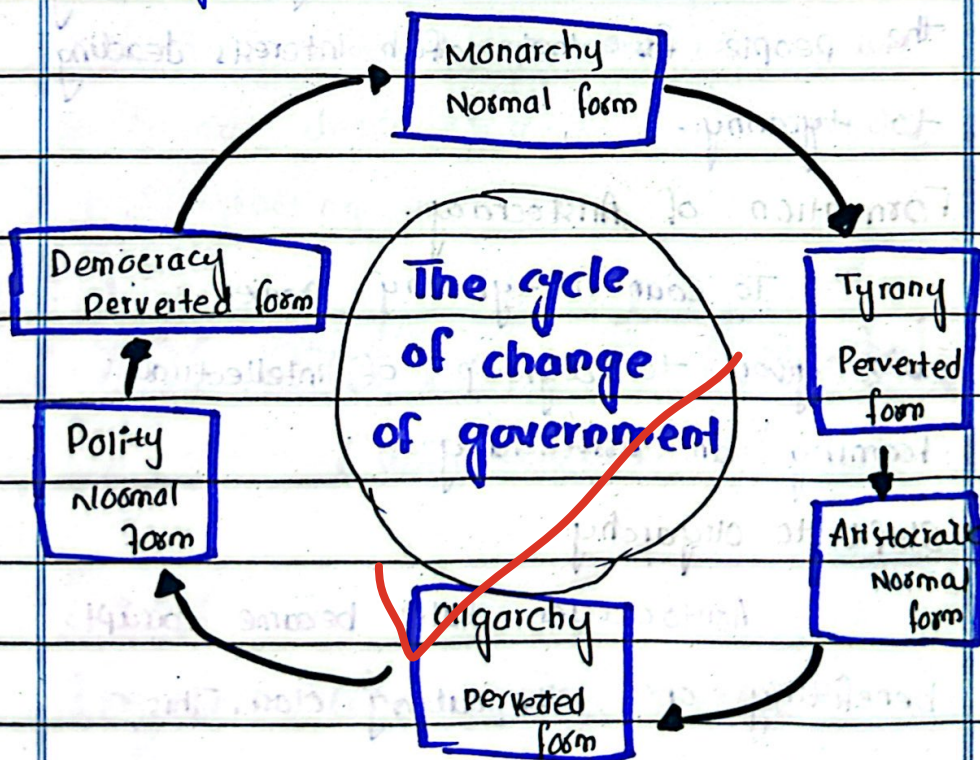 Monarchy
Normal form
Tyrany
Perverted
form
Aristocratic
Normal
form
Oligarchy
Perverted
form
Polity
Normal
form
Democracy
Perverted form
The cycle
of change
of government